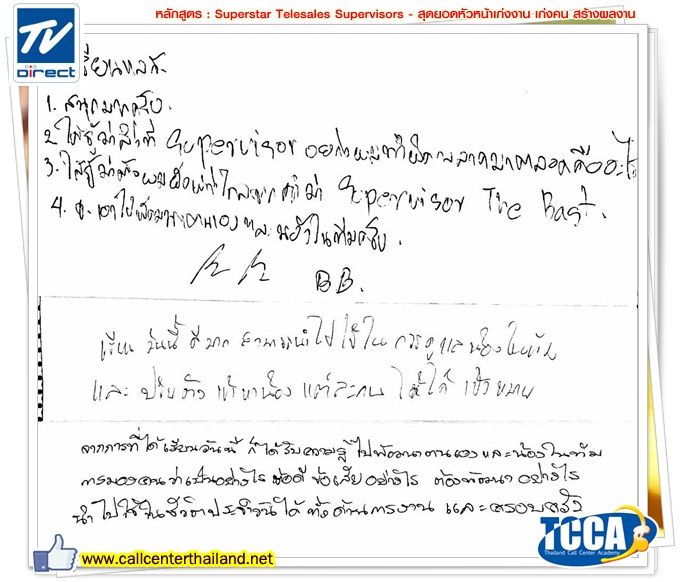 หลักสูตร : Superstar Telesales Supervisors - สุดยอดหัวหน้าเก่งงาน เก่งคน สร้างผลงาน
TV
Direct
เรียนแล้ว
1. สนุกมากครับ.
2. ให้รู้ว่าสิ่งที่ Supervisor อย่างผมทำผิดพลาดมาตลอดคืออะไร
3. ให้รู้ว่าตัวผมยังห่างไกลคำว่า Supervisor The Bast.
4. จะเอาไปพัฒนาตนเองและน้องในทีมครับ.
BB.
เรียน วันนี้ ดีมาก สามารถนำไปใช้ใน การดูแลน้องในทีม
และ ปรับตัว เข้าหาน้อง แต่ละคน ให้ได้ เป้าหมาย
จากการที่ได้เรียนวันนี้ ก็ได้รับความรู้ไปพัฒนาตนเอง และน้องในทีม
การมองคนว่าเป็นอย่างไร ข้อดี ข้อเสียอย่างไร ต้องพัฒนาอย่างไร
นำไปใช้ในชีวิตประจำวันได้ ทั้งด้านการงาน และครอบครัว
TCCA
Thailand Call Center Academy
www.callcenterthailand.net